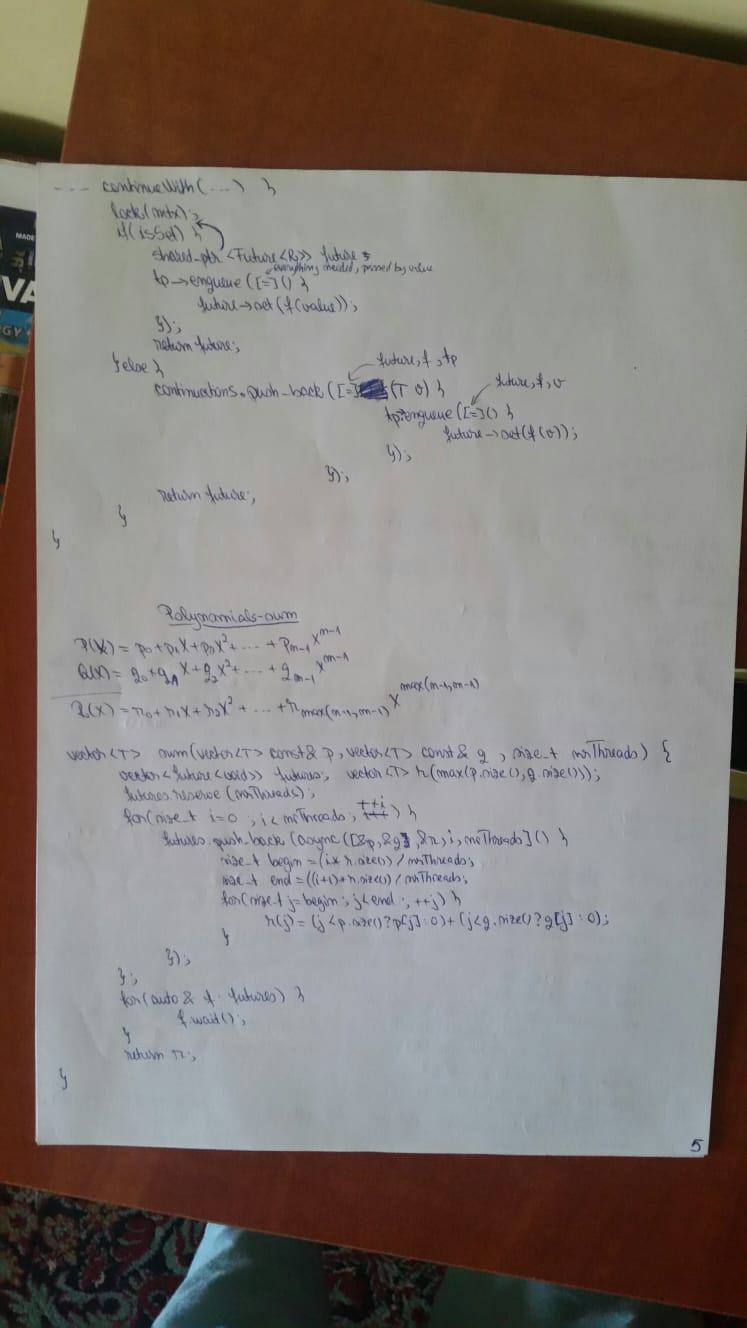 --- continueWith(...) }
lock(mtx);
if(isSet) {
shared_ptr <Future<R>> future;
everything needed, passed by value
tp->enqueue([=]() {
future->set(f(value));
});
return future;
}else {
future, f, tp
continuations.push_back([=](T v) {
future, f, v
tp->enqueue([=]() {
future->set(f(v));
});
});
return future;
}
}
Polynomials-sum
P(X) = p0+p1X+p2X²+ ... + pm-1 X^m-1
Q(X) = q0+q1X+q2X²+ ... + qm-1 X^m-1
R(X) = r0+r1X+r2X² + ... + rmax(m-1,m-1) X^max(m-1,m-1)
vector<T> sum(vector<T> const& p, vector<T> const& q, size_t nrThreads) {
vector<future<void>> futures; vector<T> r(max(p.size(),q.size()));
futures.reserve(nrThreads);
for(size_t i=0; i<nrThreads; ++i) {
futures.push_back(async([&p,&q,&r,i,nrThreads]() {
size_t begin=(i*r.size())/nrThreads;
size_t end=((i+1)*r.size())/nrThreads;
for(size_t j=begin; j<end; ++j) {
r(j)=(j<p.size()?p[j]:0)+(j<q.size()?q[j]:0);
}
});
};
for(auto& f: futures) {
f.wait();
}
return r;
}
5
MADE
VA
GY